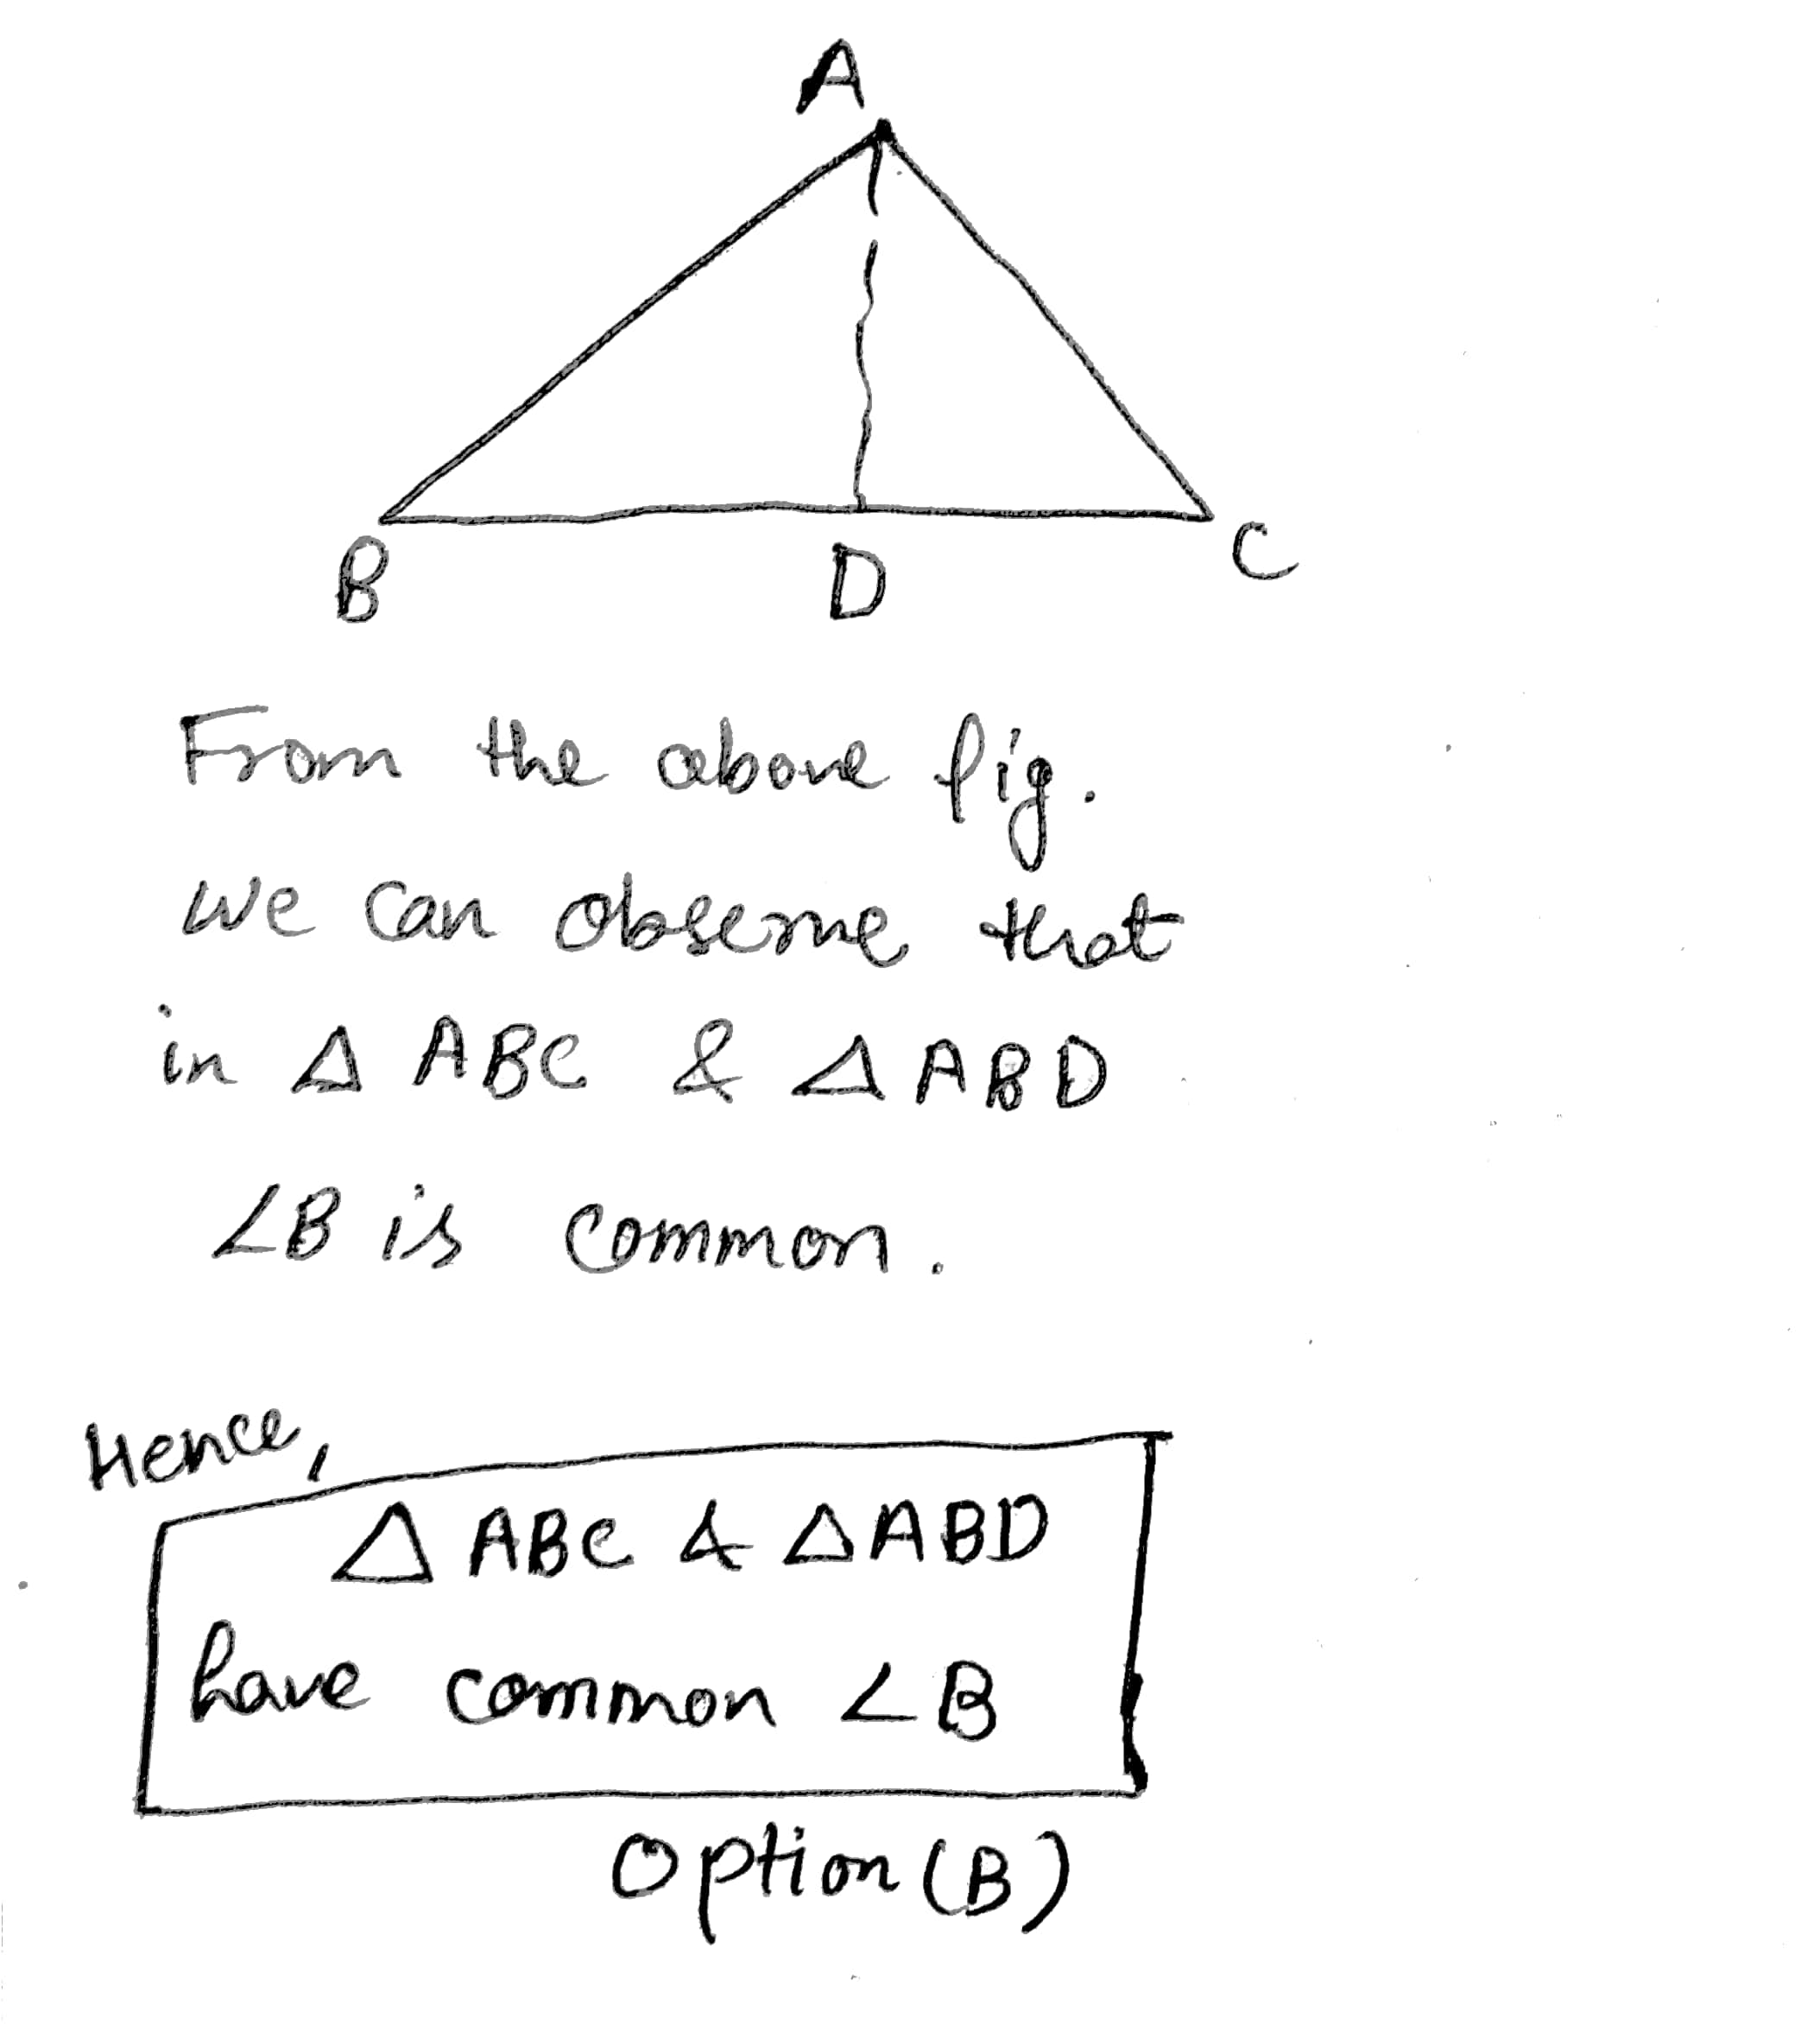 A
B
D
C
From the above fig.
we can observe that
in △ ABC & △ ABD
∠B is common.
Hence,
△ ABC & △ ABD
have common ∠B
Option (B)